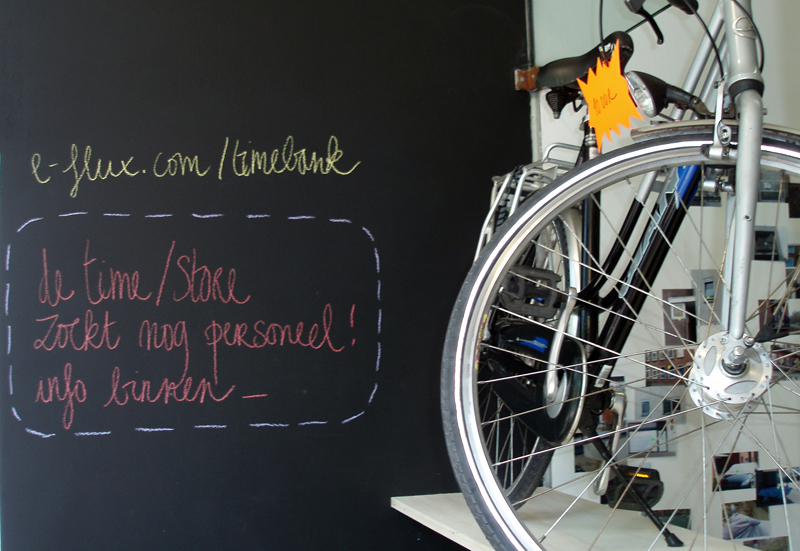 e-flux.com/timebank
de time/store
zoekt nog personeel!
info binnen _